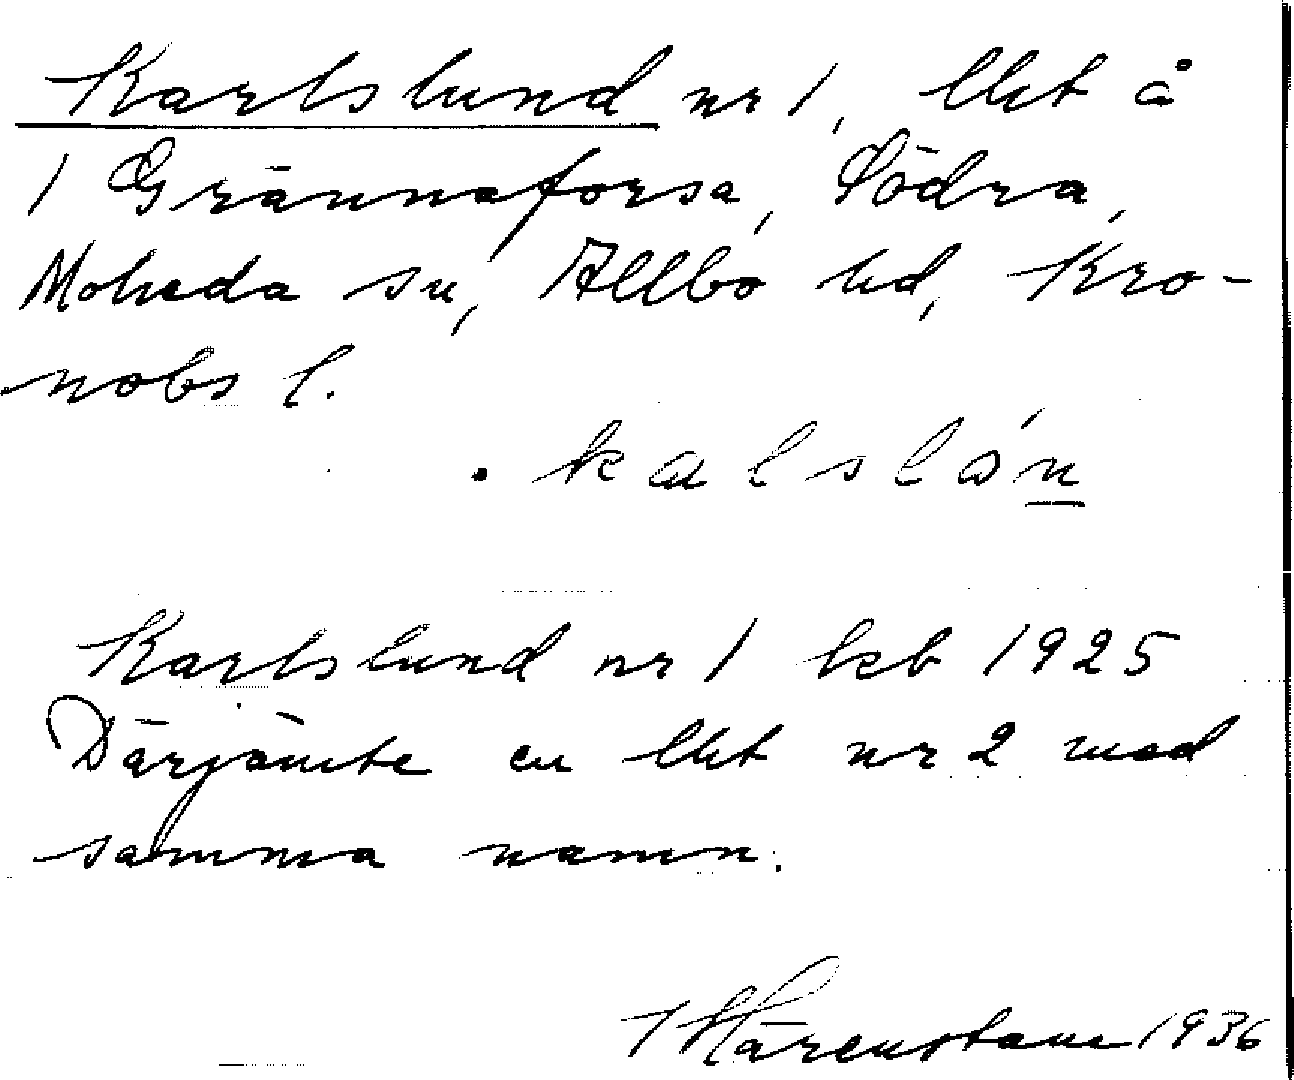 Karlslund nr 1, lht å
1 Grännaforsa, Södra,
Moheda sn, Allbo hd, Kro-
nobs l.
. kalslón
Karlslund nr 1 kcb 1925
Därjämte en lht nr 2 med
samma namn.
Härenstam 1936